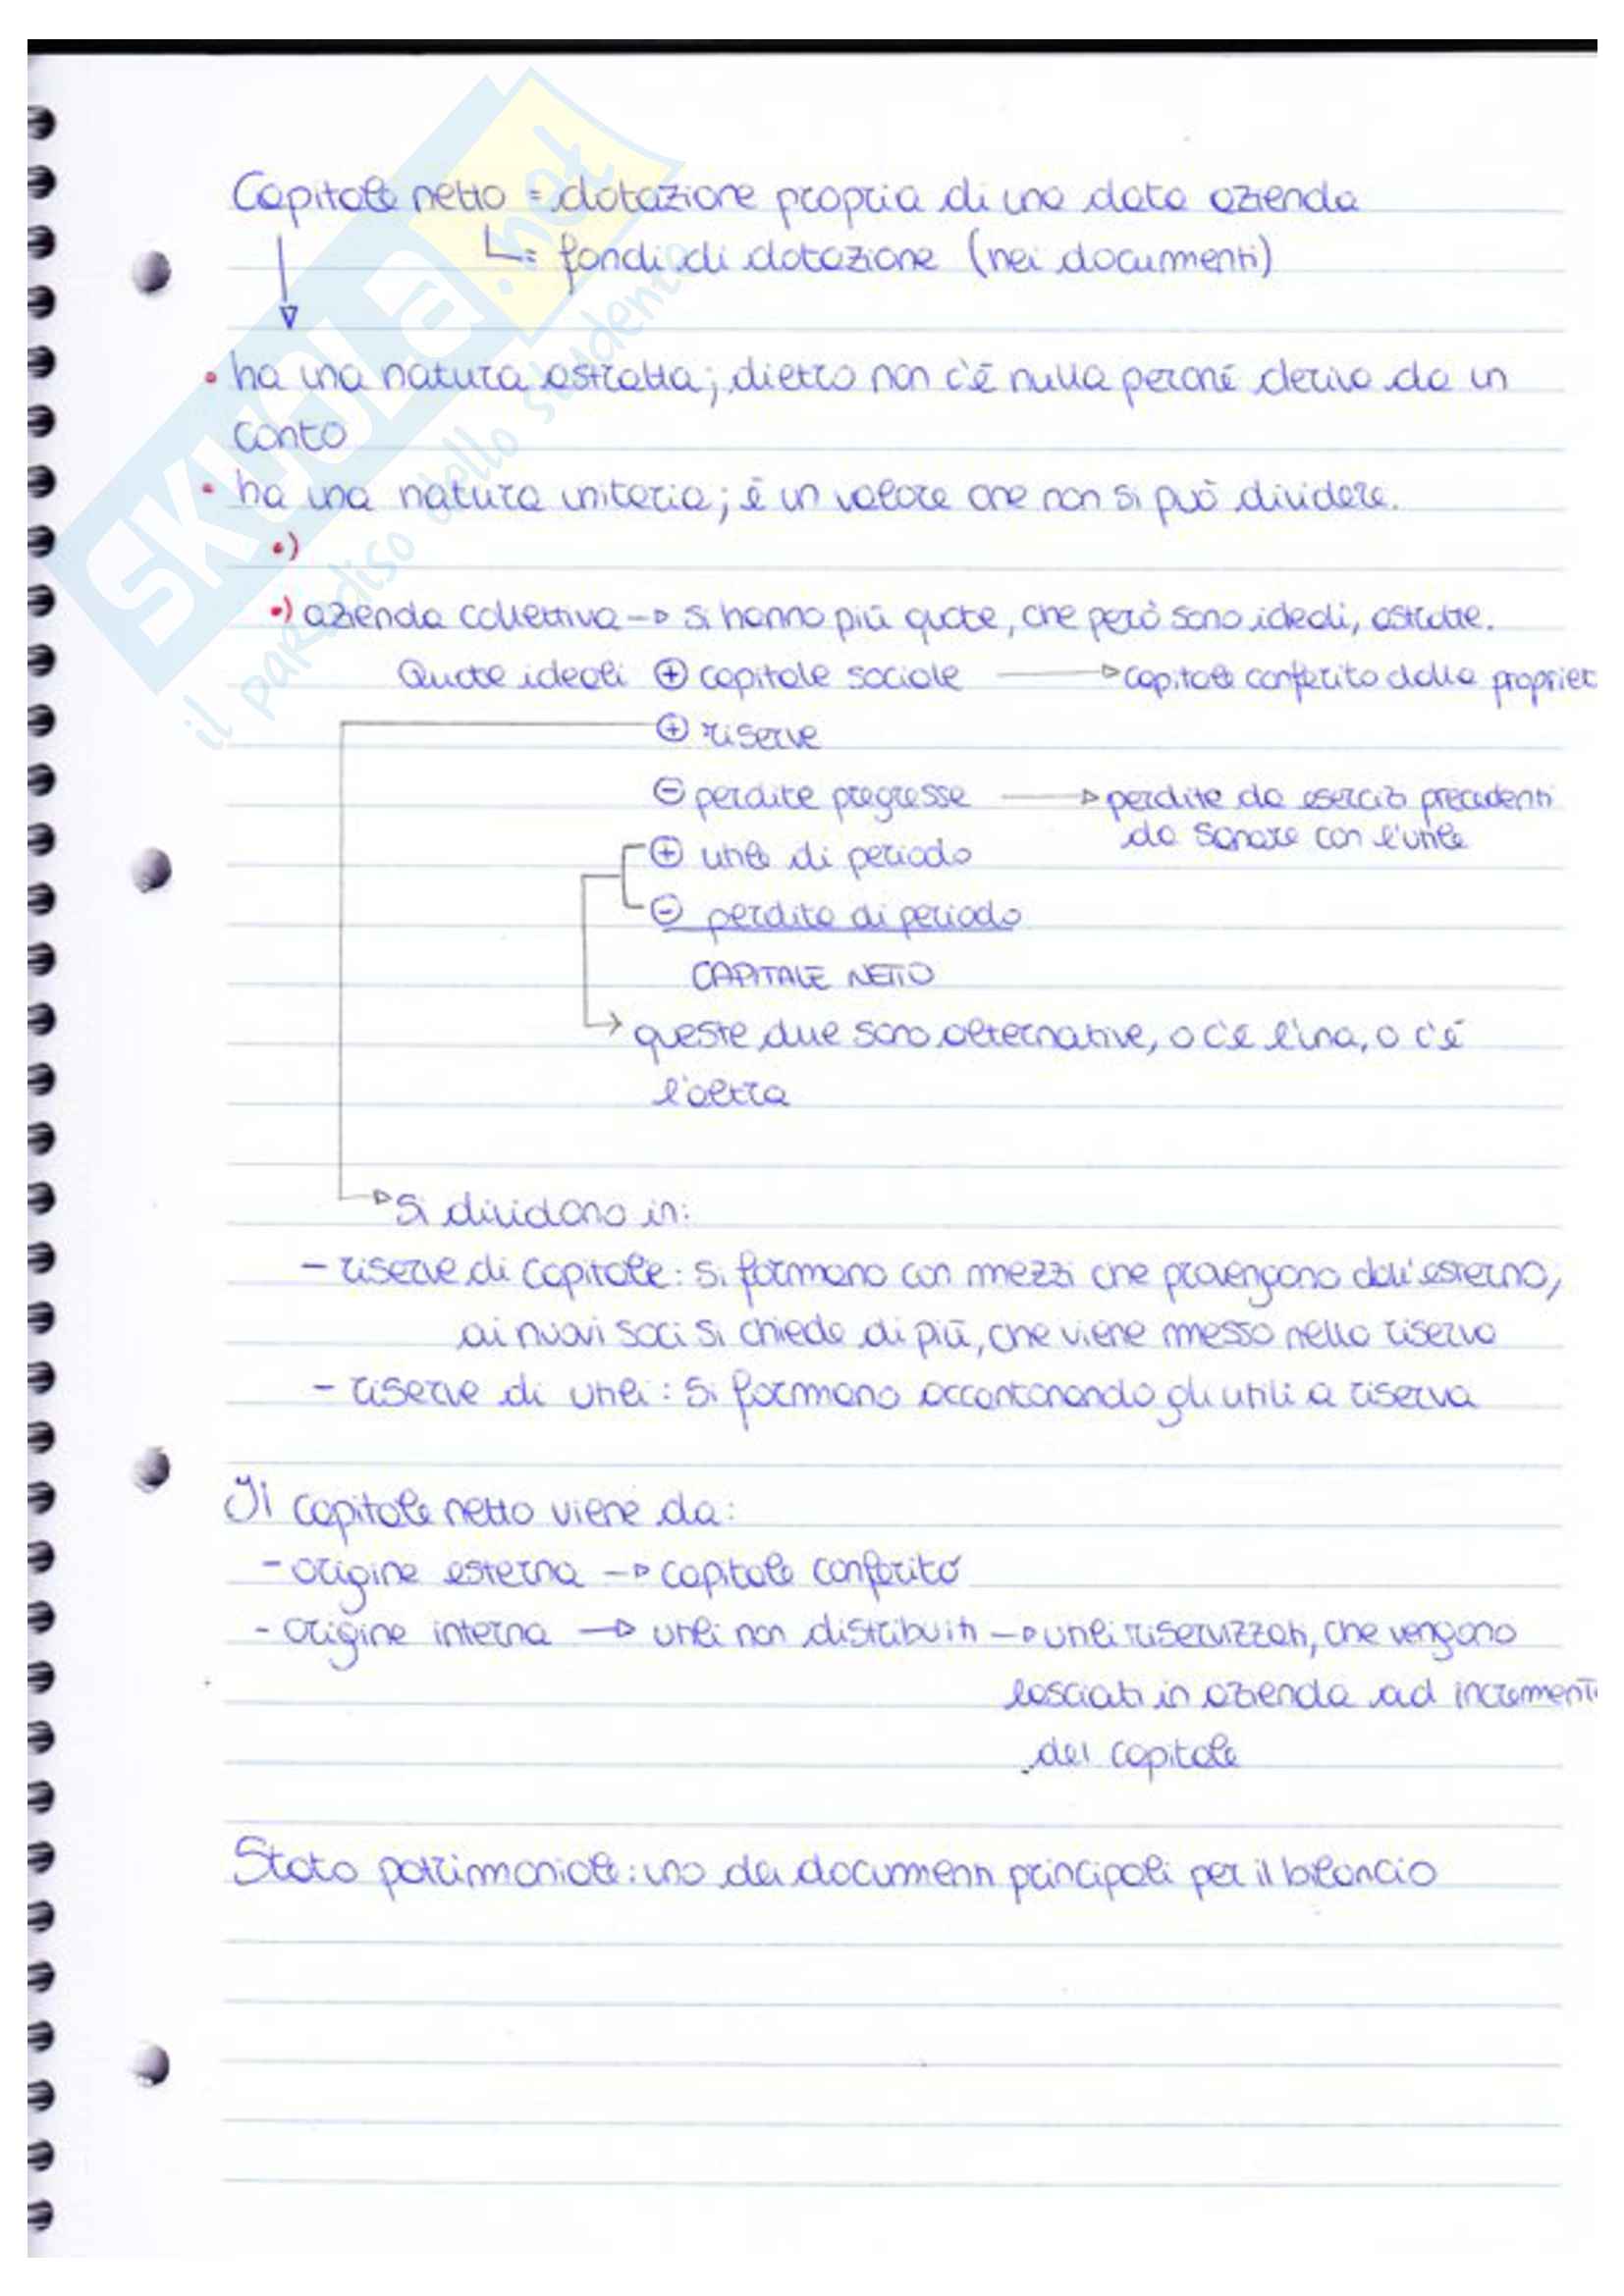 Capitale netto = dotazione propria di una data azienda
= fondi di dotazione (nei documenti)
• ha una natura astratta; dietro non c'è nulla perché deriva da un
conto
• ha una natura unitaria; è un valore che non si può dividere.
•)
•) azienda collettiva → si hanno più quote, che però sono ideali, astratte.
Quote ideali ⊕ capitale sociale → capitale conferito dalla propriet
⊕ riserve
⊖ perdite pregresse → perdite da esercizi precedenti
da sanare con l'utile
⊕ utile di periodo
⊖ perdita di periodo
CAPITALE NETTO
→ queste due sono alternative, o c'è l'una, o c'è
l'altra
→ Si dividono in:
- riserve di capitale: si formano con mezzi che provengono dall'esterno,
ai nuovi soci si chiede di più, che viene messo nella riserva
- riserve di utili: si formano accantonando gli utili a riserva
Il capitale netto viene da:
- origine esterna → capitale conferito
- origine interna → utili non distribuiti → utili riservizzati, che vengono
lasciati in azienda ad increment
del capitale
Stato patrimoniale: uno dei documenti principali per il bilancio
SKUOLA.net
il paradiso dello studente